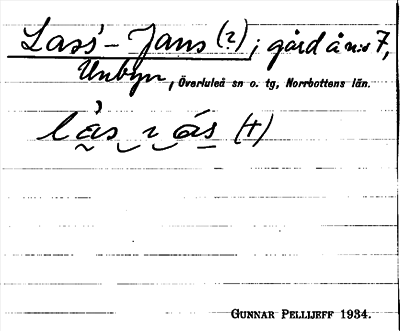 Lass'-Jans (2); gård å n:o 7,
Unbyn, Överluleå sn o. tg, Norrbottens län.
GUNNAR PELLIJEFF 1934.